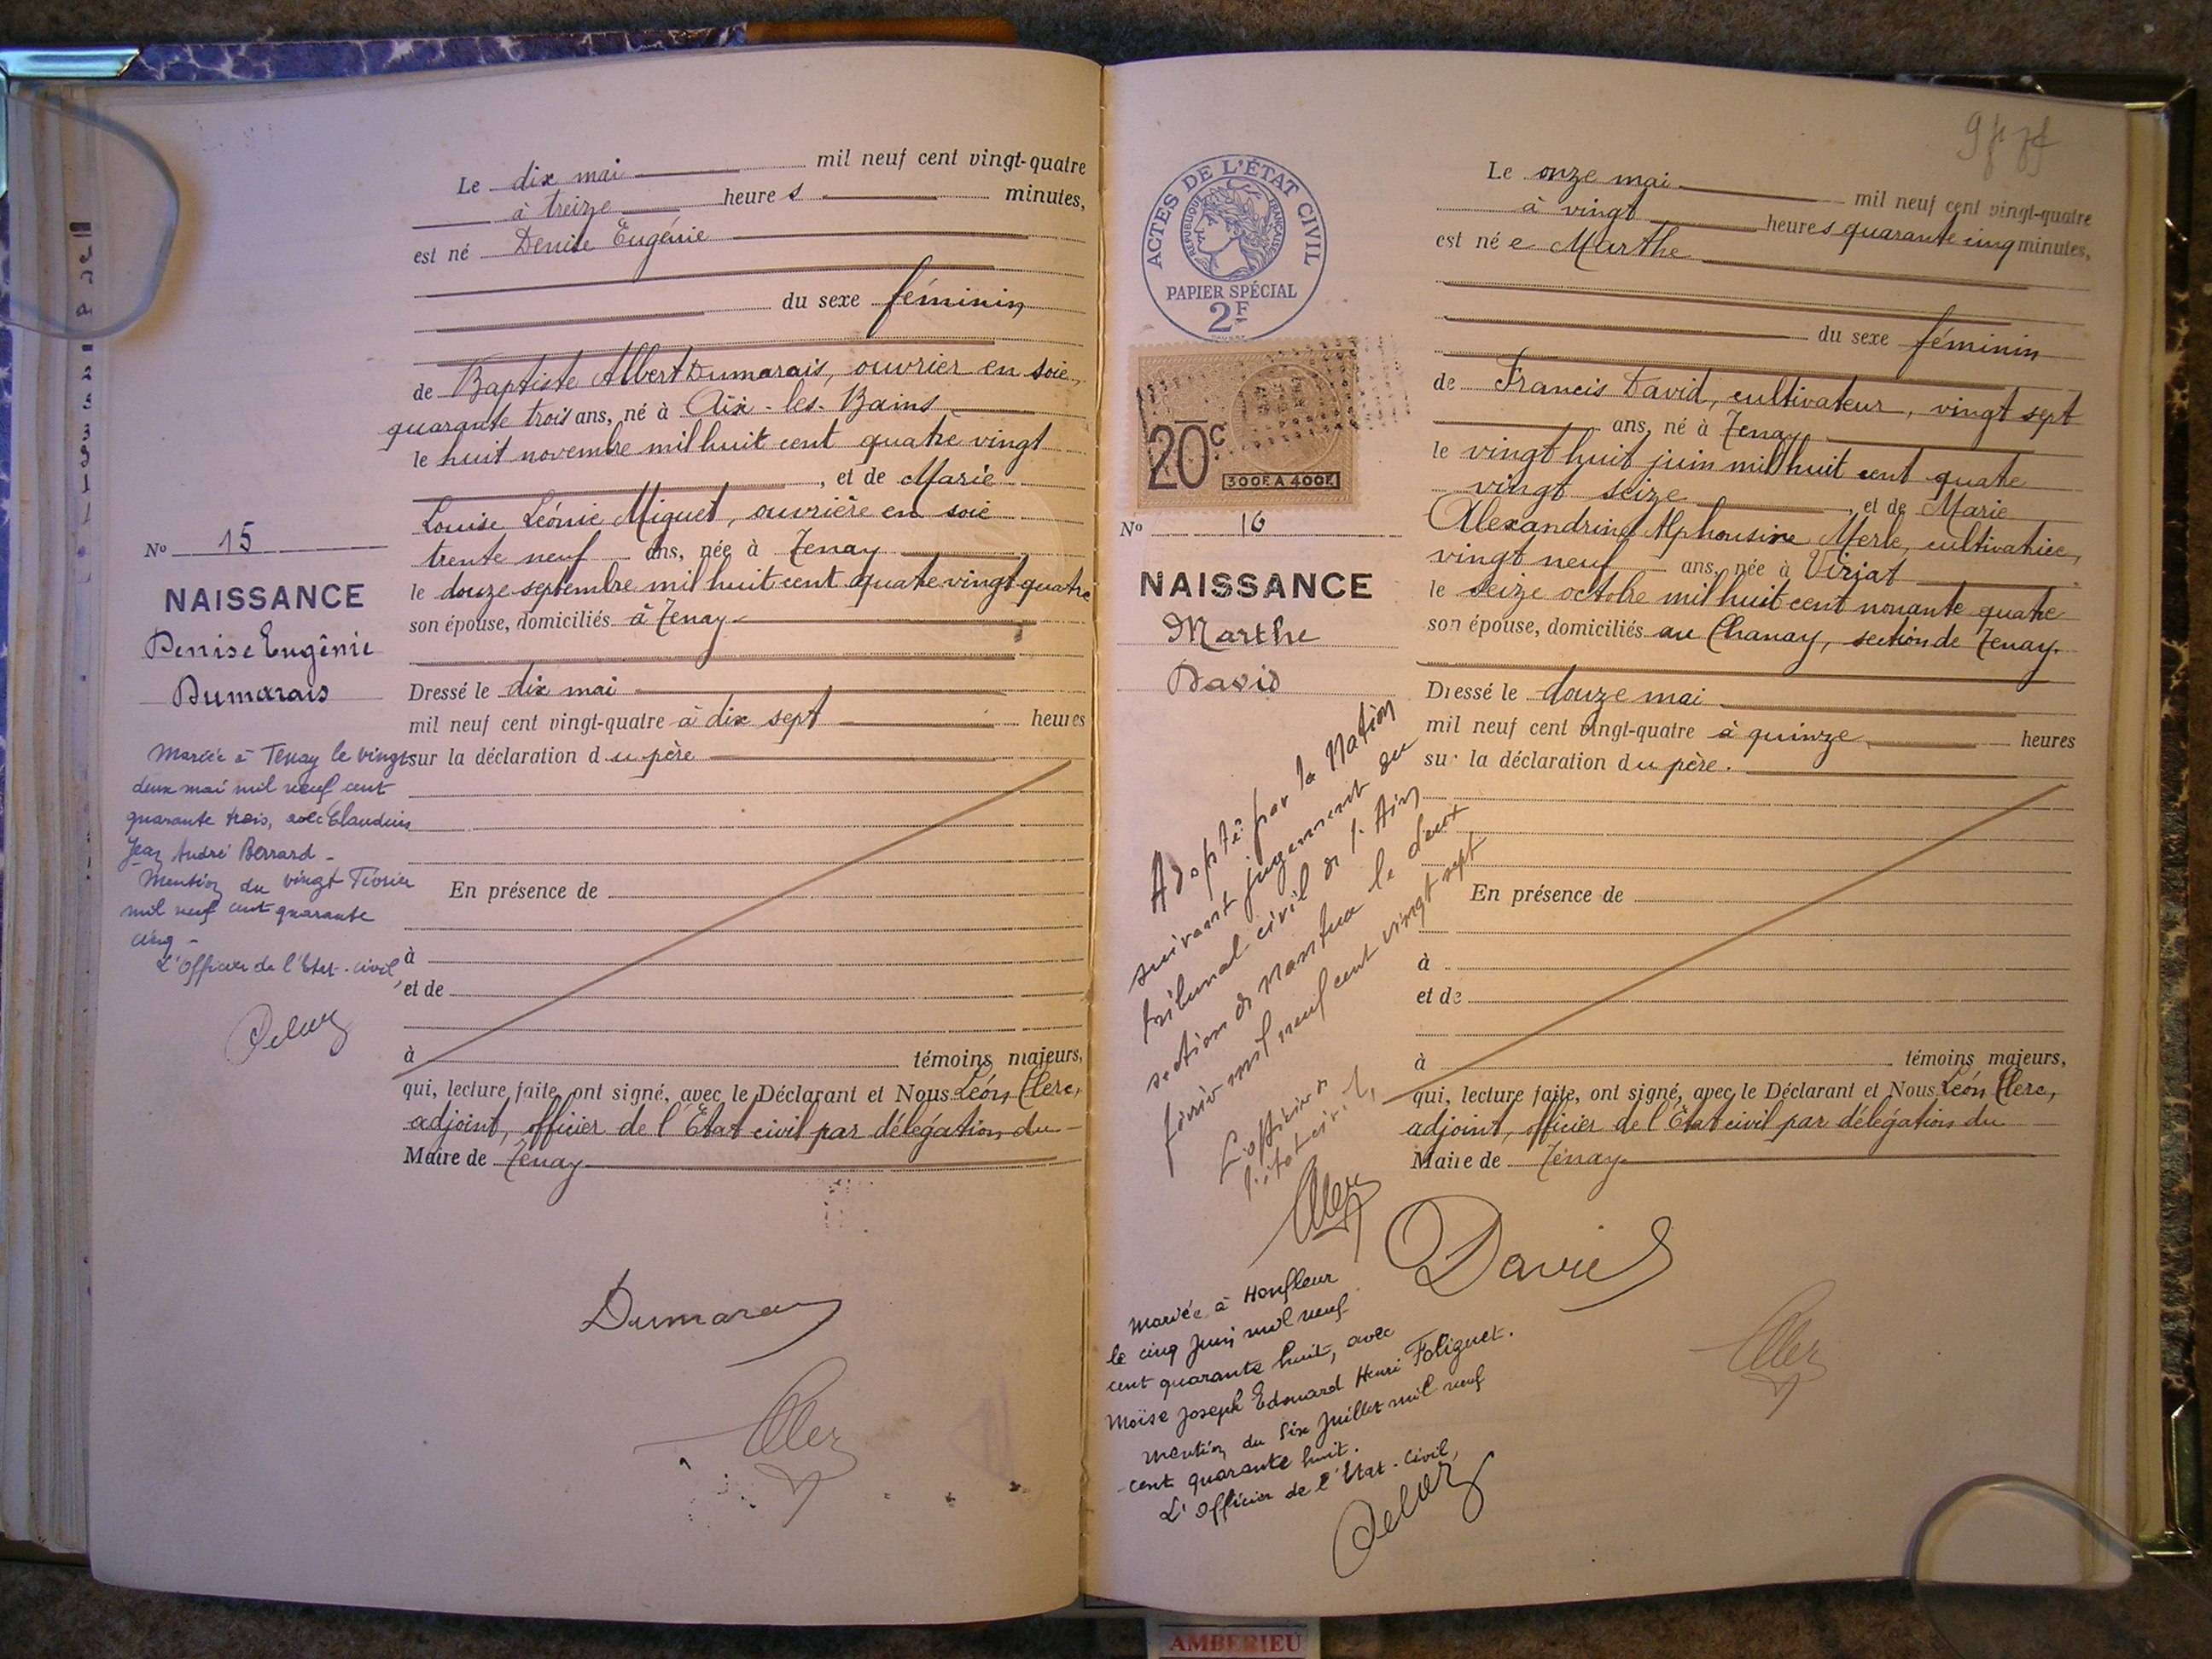 Le dix mai mil neuf cent vingt-quatre
à treize heures minutes,
est né Denise Eugénie
du sexe féminin
de Baptiste Albert Dumarais, ouvrier en soie,
quarante trois ans, né à Aix-les-Bains
le huit novembre mil huit cent quatre vingt
, et de Marie
Louise Léonie Miguet, ouvrière en soie
trente neuf ans, née à Tenay
le douze septembre mil huit cent quatre vingt quatre
son épouse, domiciliés à Tenay
Dressé le dix mai
mil neuf cent vingt-quatre à dix sept heures
sur la déclaration du père
En présence de
à
et de
à témoins majeurs,
qui, lecture faite, ont signé, avec le Déclarant et Nous Léon Clerc,
adjoint, officier de l'Etat civil par délégation du
Maire de Tenay
Dumarais
No 15
NAISSANCE
Denise Eugénie
Dumarais
Mariée à Tenay le vingt
deux mai mil neuf cent
quarante trois, avec Claudius
Jean André Berrard -
Mention du vingt Février
mil neuf cent quarante
cinq -
L'Officier de l'Etat-civil,
ACTES DE L'ÉTAT CIVIL
RÉPUBLIQUE FRANÇAISE
PAPIER SPÉCIAL
2F
20c
300F A 400F
No 16
NAISSANCE
Marthe
David
Adopté par la Nation
suivant jugement du
tribunal civil de l'Ain
section de Nantua le deux
février mil neuf cent vingt sept
L'officier de
l'état civil,
Mariée à Honfleur
le cinq Juin mil neuf
cent quarante huit, avec
Moïse Joseph Edouard Henri Foliguet.
Mention du Six Juillet mil neuf
cent quarante huit.
L'Officier de l'Etat-Civil,
Le onze mai mil neuf cent vingt-quatre
à vingt heures quarante cinq minutes,
est née Marthe
du sexe féminin
de Francis David, cultivateur, vingt sept
ans, né à Tenay
le vingt huit juin mil huit cent quatre
vingt seize, et de Marie
Alexandrine Alphonsine Merle, cultivatrice,
vingt neuf ans, née à Viriat
le seize octobre mil huit cent nonante quatre
son épouse, domiciliés au Chanay, section de Tenay.
Dressé le douze mai
mil neuf cent vingt-quatre à quinze heures
sur la déclaration du père.
En présence de
à
et de
à témoins majeurs,
qui, lecture faite, ont signé, avec le Déclarant et Nous Léon Clerc,
adjoint, officier de l'Etat civil par délégation du
Maire de Tenay
David
AMBERIEU